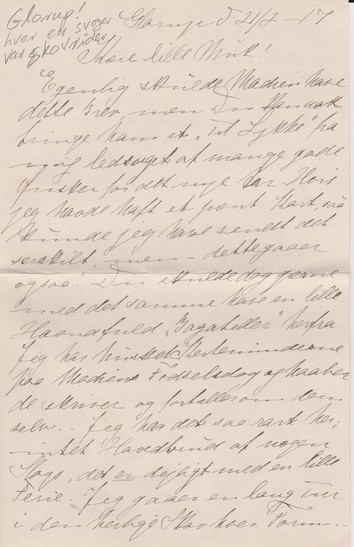 Glorup!
hvor en svoger
var skovrider
Glorup d. 21/2 – 17
Kære lille Mink!
Egenlig skulde Madien have
dette Brev, men Du kan nok
bringe ham et „Til Lykke“ fra
mig ledsaget af mange gode
Ønsker for det nye Aar. Hvis
jeg havde haft et pænt Kort, saa
kunde jeg have sendt det
serskilt, men – dette gaaer
ogsaa. Du skulde dog gerne
med det samme have en lille
Haandfuld „Bagateller“ herfra.
Jeg har husket Kerteminderne
paa Madiens Fødselsdag og haaber
de skriver og fortæller om dem
selv. – Jeg har det saa rart her,
intet Hovedbrud af nogen
Slags, det er dejligt med en lille
Ferie. Jeg gaaer en lang Tur
i den herlige Skov hver Form..